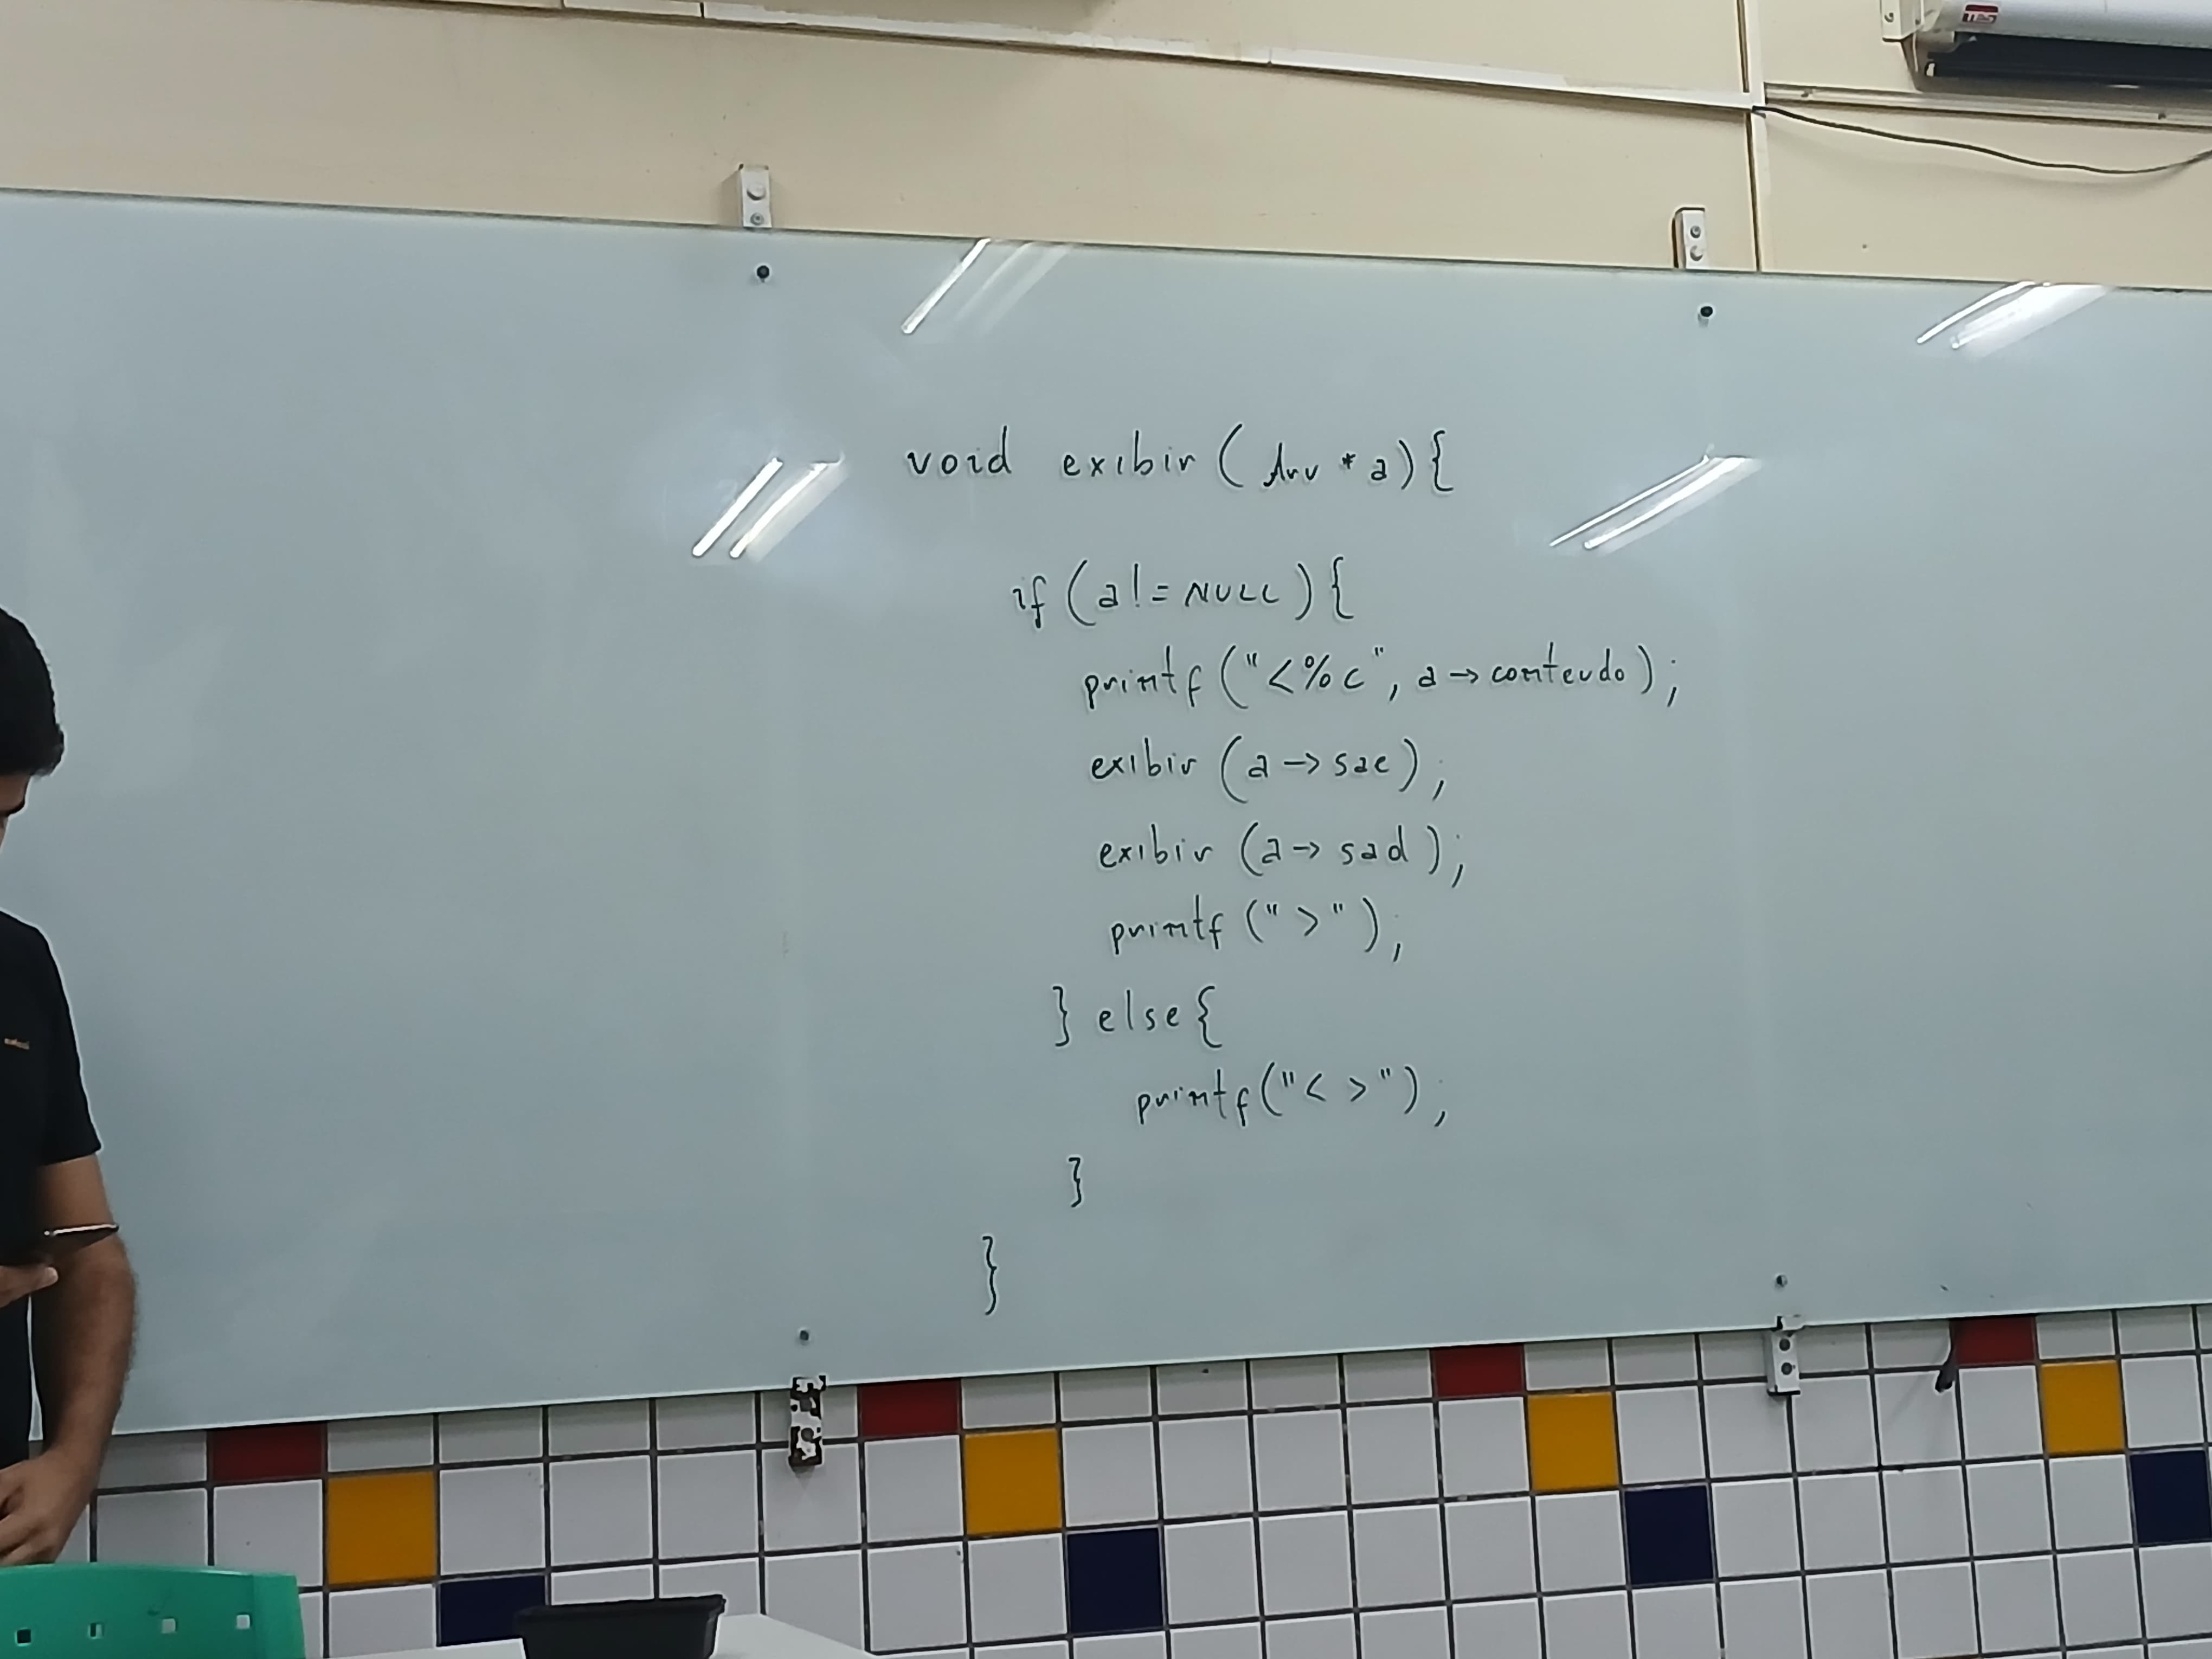 void exibir (Arv * a){
if (a != NULL){
printf ("<%c", a -> conteudo);
exibir (a -> sae);
exibir (a -> sad);
printf (">");
} else {
printf ("< >");
}
}